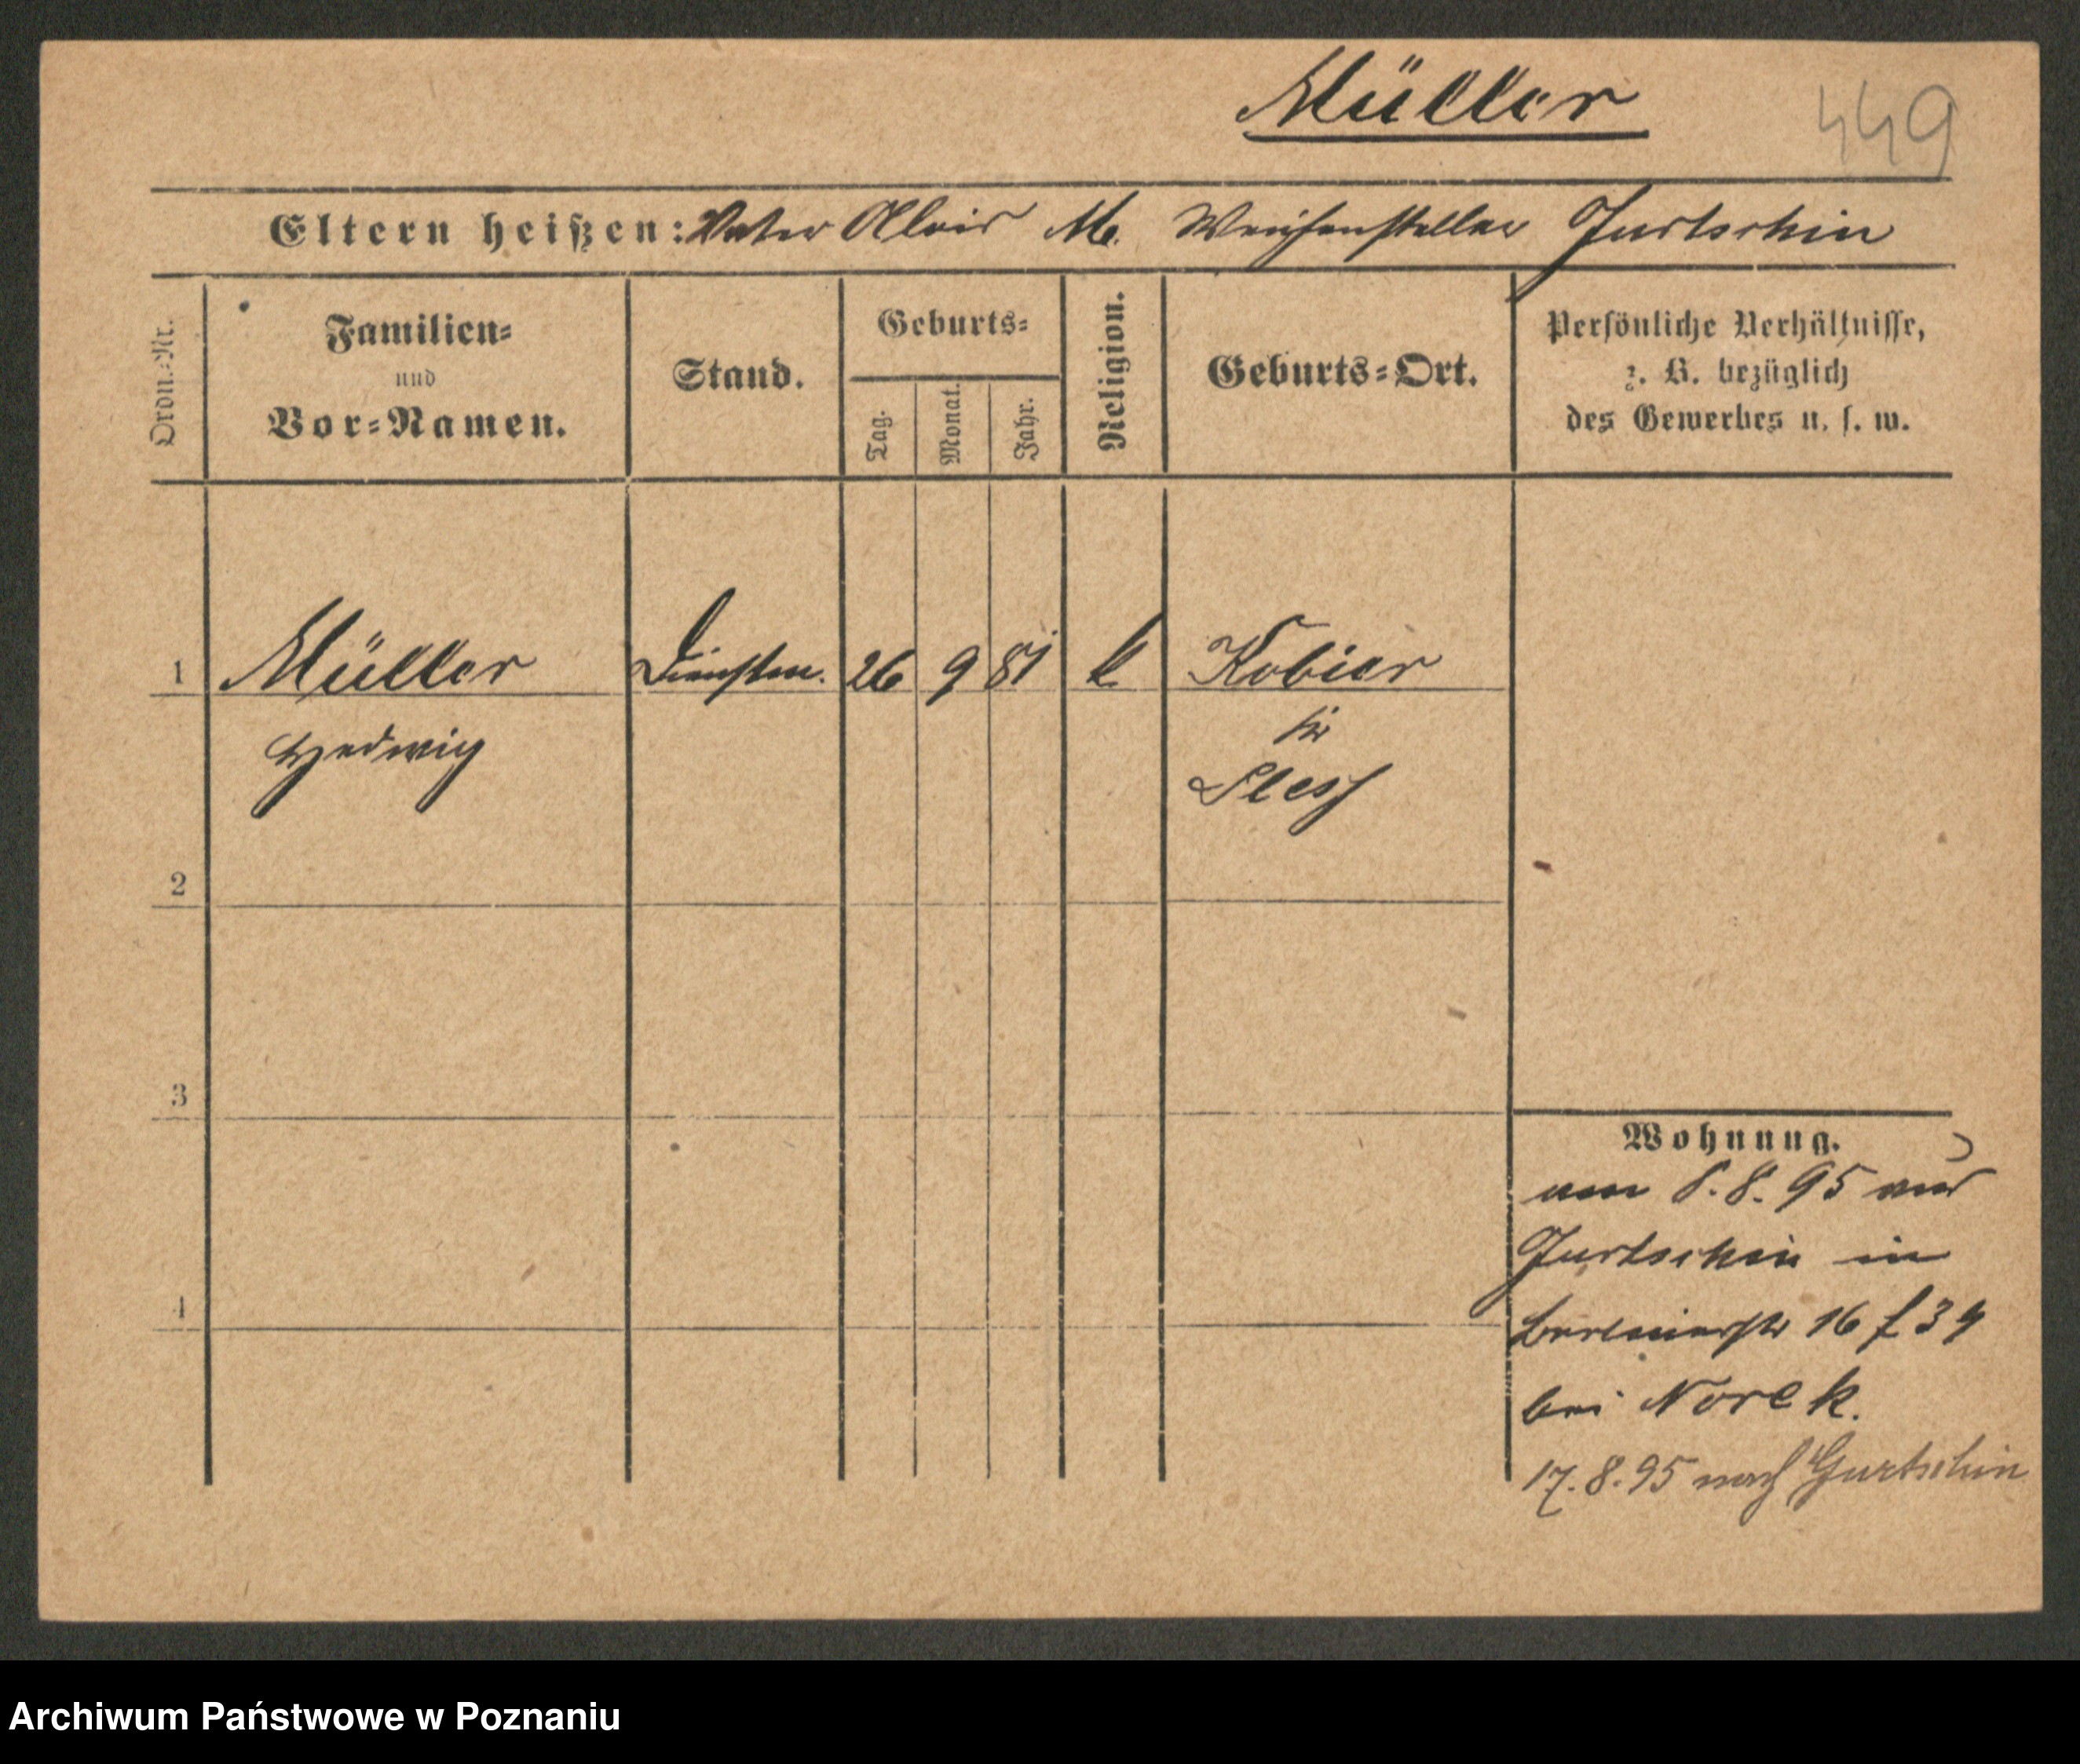 Müller
449
Eltern heißen: Vater Alois M. Weichensteller Gurtschin
Ordn.-Nr.
Familien-
und
Vor-Namen.
Stand.
Geburts-
Tag.
Monat.
Jahr.
Religion.
Geburts-Ort.
Persönliche Verhältnisse,
z. B. bezüglich
des Gewerbes u. s. w.
1 Müller Dienstm. 26 9 81 k Kobier
Hedwig
Kr
Pless
2
3
4
Wohnung.
am 8.8.95 aus
Gurtschin in
Berlinerstr 16
bei Norek.
17.8.95 nach Gurtschin
Archiwum Państwowe w Poznaniu